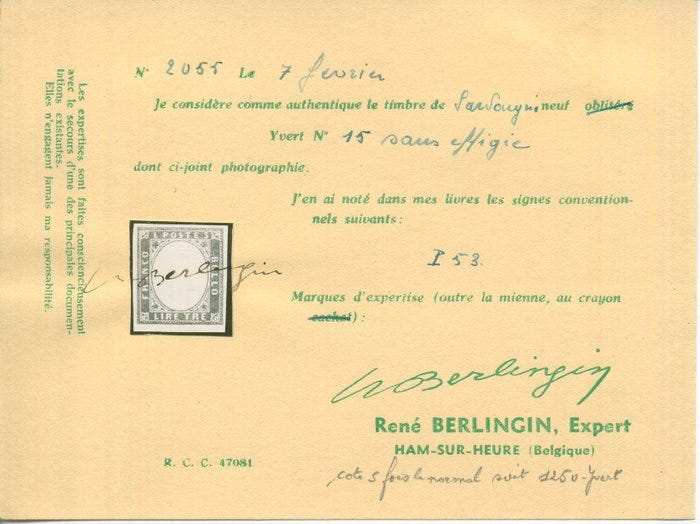 Les expertises sont faites consciencieusement
avec le secours d'une des principales documen-
tations existantes.
Elles n'engagent jamais ma responsabilité.
N° 2055 Le 7 fevrier
Je considère comme authentique le timbre de Sardaigne neuf oblitéré
Yvert N° 15 sans effigie
dont ci-joint photographie.
J'en ai noté dans mes livres les signes convention-
nels suivants :
I 53.
Marques d'expertise (outre la mienne, au crayon
cachet) :
L. POSTE 3
FRANCO
BOLLO
LIRE TRE
Berlingin
Berlingin
René BERLINGIN, Expert
HAM-SUR-HEURE (Belgique)
R. C. C. 47081
cote 5 fois le normal soit 1250 Yvert